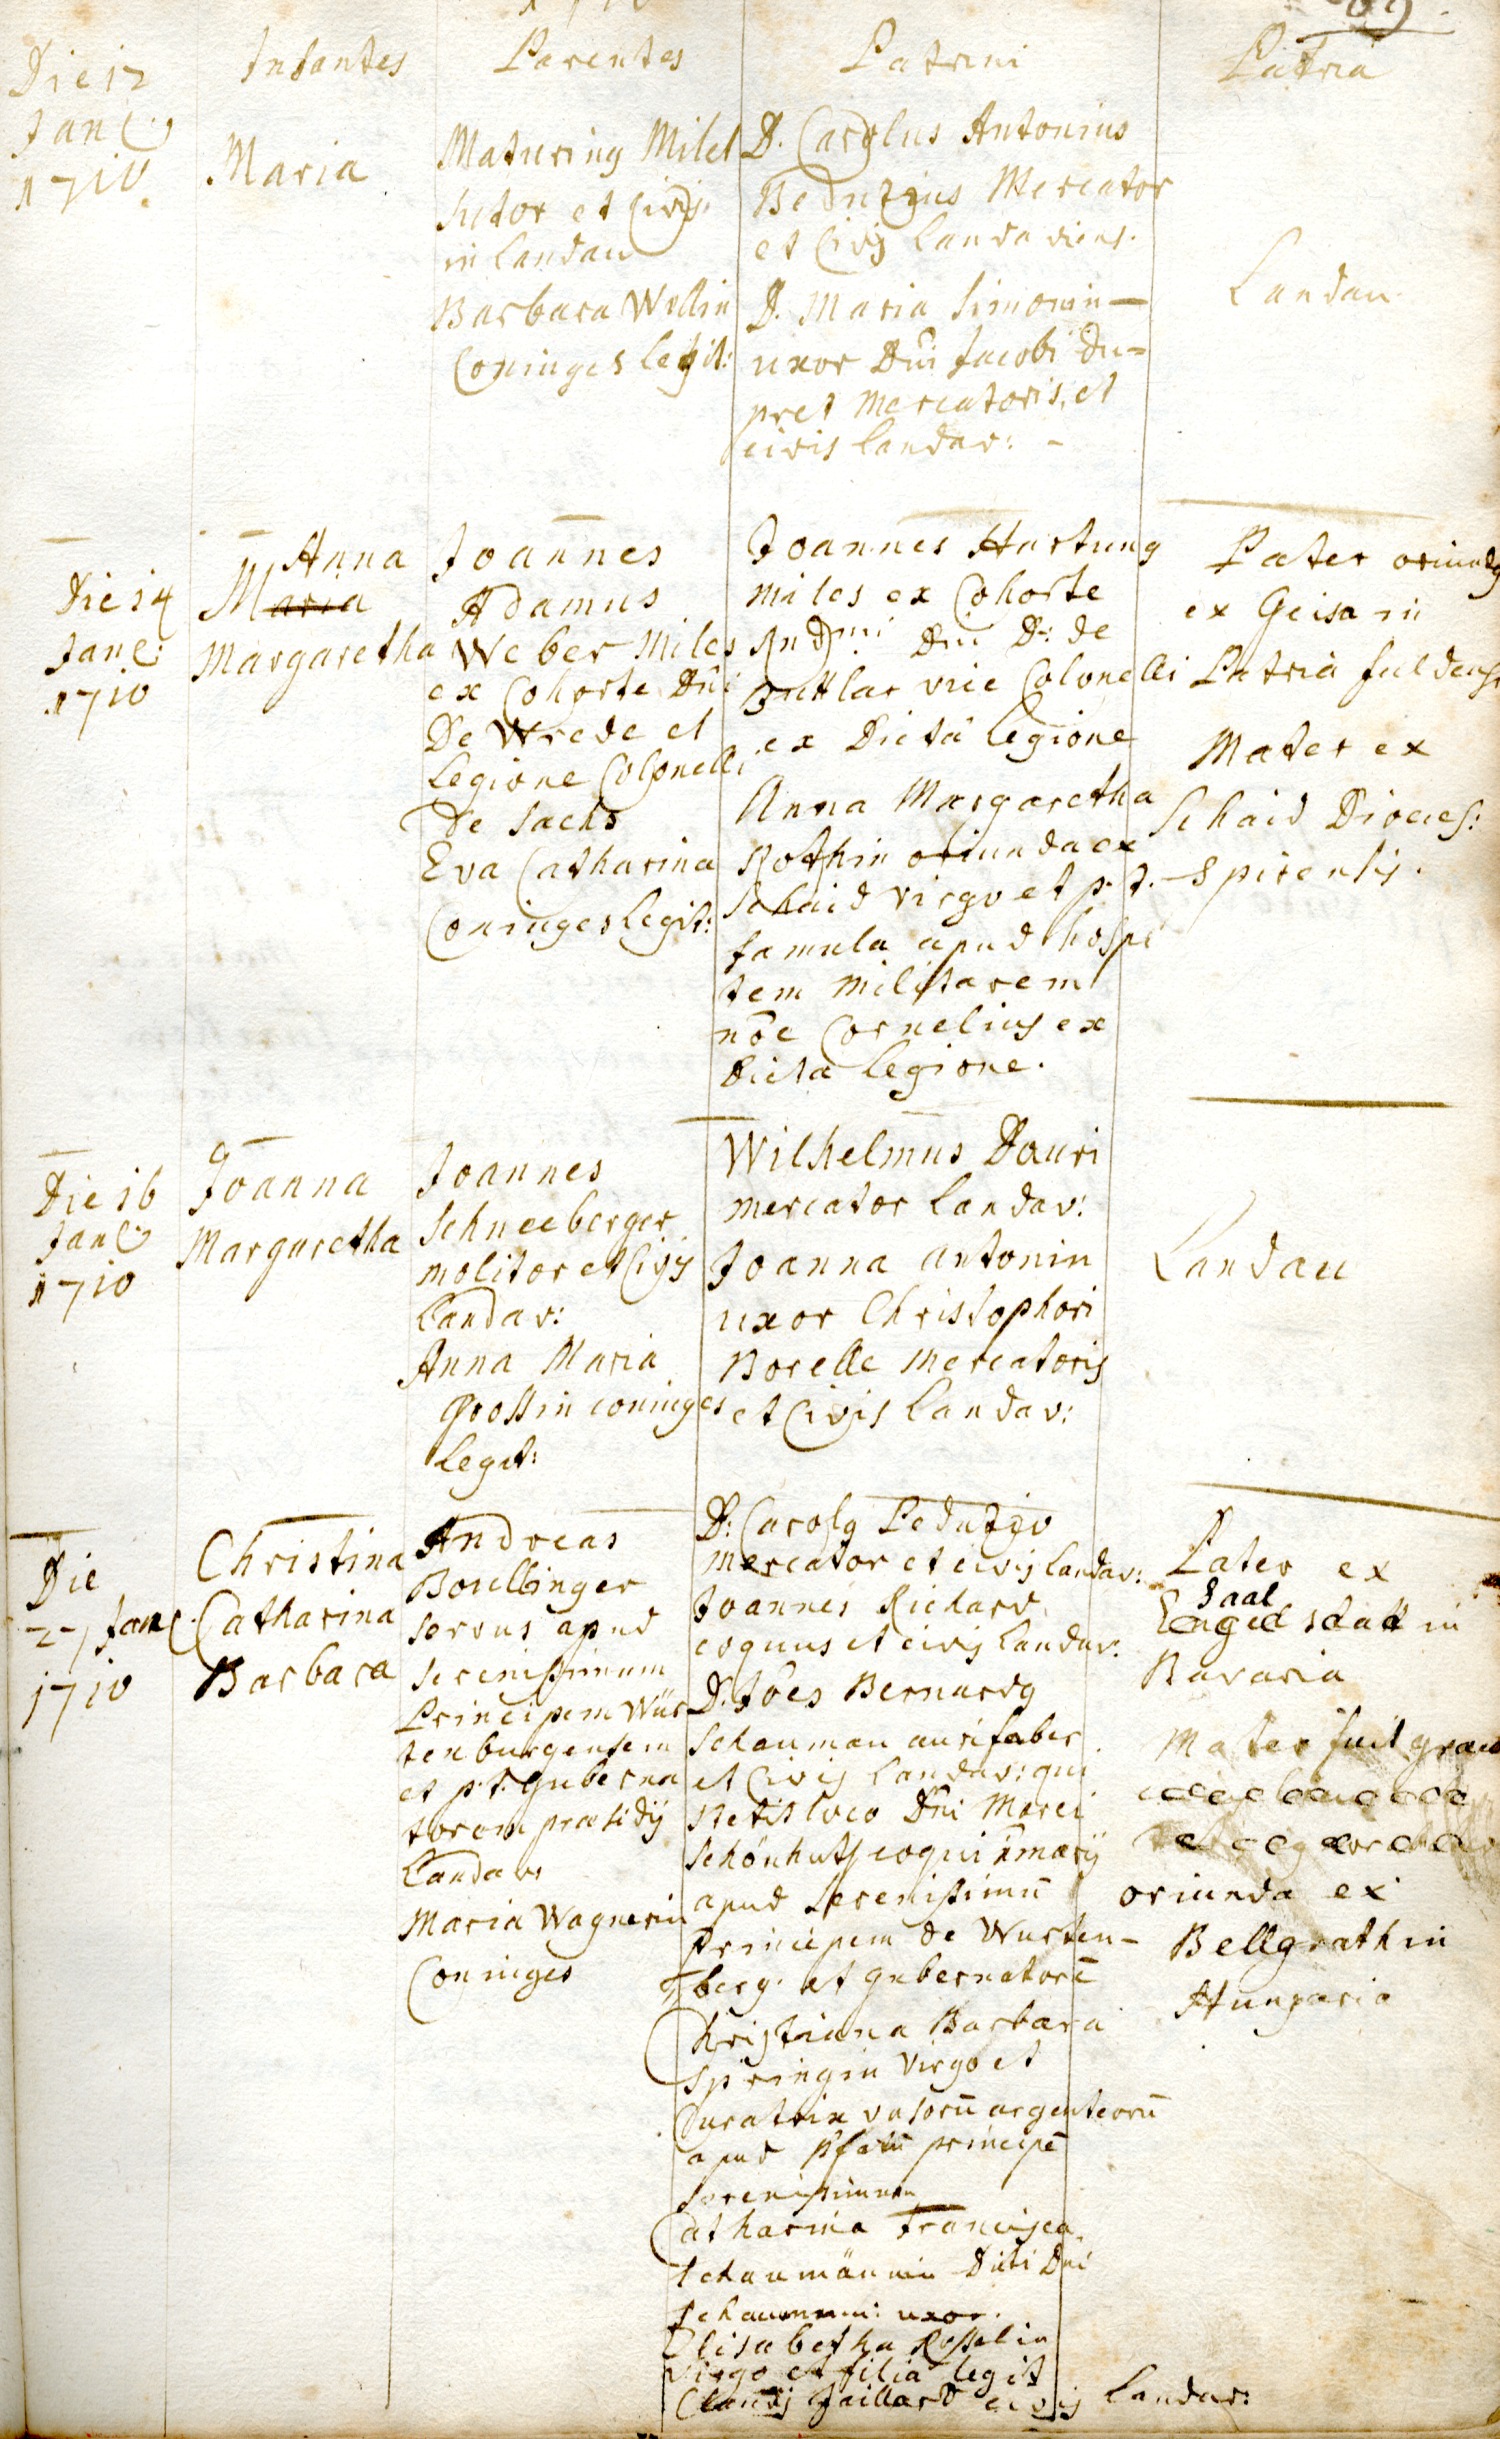 Infantes Parentes Patrini Patria
Die 12
Jan:
1710
Maria
Maturinus Milet
sutor et Civis
in Landau
Barbara
Coniuges legit:
D. Carolus Antonius
Beduzius Mercator
et Civis Landaviens.
D. Maria Simonin
uxor Dni Jacobi Du=
pret Mercatoris, et
civis Landav:
Landau
Die 14
Jan:
1710
Anna
Maria
Margaretha
Joannes
Adamus
Weber Miles
ex Cohorte Dni
De Wrede et
Legione Colonelli
De Sachs
Eva Catharina
Coniuges Legit:
Joannes Hartung
miles ex Cohorte
Dni D: de
Buttlar vice Colonelli
ex Dictâ Legione
Anna Margaretha
Rothin oriunda ex
Schaid virgo et p. t.
famula apud hospi
tem militarem
nōe Cornelius ex
Dicta Legione.
Pater oriundus
ex Geisa in
Patria fuldensi
Mater ex
Schaid Dioces:
Spirensis.
Die 16
Jan:
1710
Joanna
Margaretha
Joannes
Schneeberger
molitor et Civis
Landav:
Anna Maria
Grossin coniuges
Legit:
Wilhelmus Dauri
mercator Landav:
Joanna Antonin
uxor Christophori
Borelle Mercatoris
et Civis Landav:
Landau
Die
27 Jan:
1710
Christina
Catharina
Barbara
Andreas
Bosellinger
servus apud
serenissimum
Principem Wür
tenburgensem
et p.t. Guberna
torem præsidij
Landav:
Maria Wagnerin
Coniuges
D: Carolus Peduzio
mercator et civis Landav:
Joannes Richard
coquus et civis Landav:
D. Jōes Bernardus
Schauman aurifaber
et Civis Landav: qui
stetit loco Dni Marci
Schönhutz coqui
apud Serenissimū
Principem de Wurten-
berg. et gubernatorē
Christiana Barbara
Springin Virgo et
Curatrix vasorū argenteorū
apud principē
serenissimum
Catharina Francisca
Schaumännin Dicti Dni
uxor.
Elisabetha Rosselin
virgo et filia legit
Claudij Jaillard civis Landav:
Pater ex
Saal
statt in
Bavaria
Mater fuit
oriunda ex
Bellgrath in
Hungaria